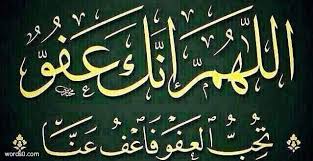 اللَّهُمَّ إِنَّكَ عَفُوٌّ
تُحِبُّ الْعَفْوَ فَاعْفُ عَنَّا
word60.com